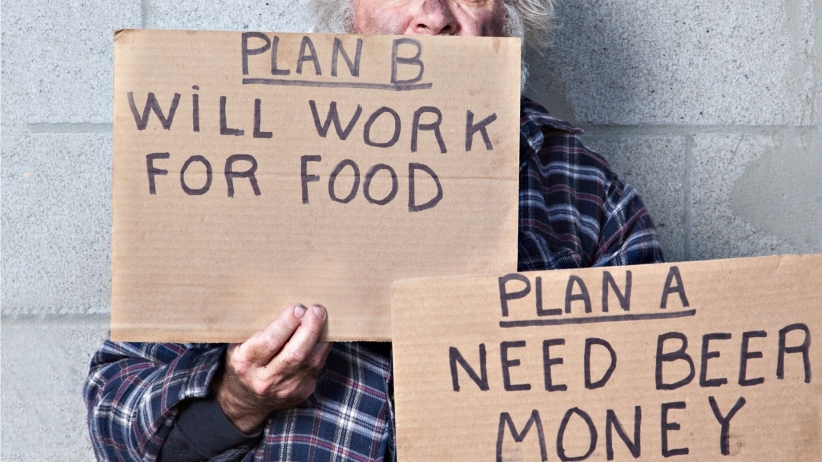 PLAN B
WiLL WORK
FOR FOOD
PLAN A
NEED BEER
MONEY